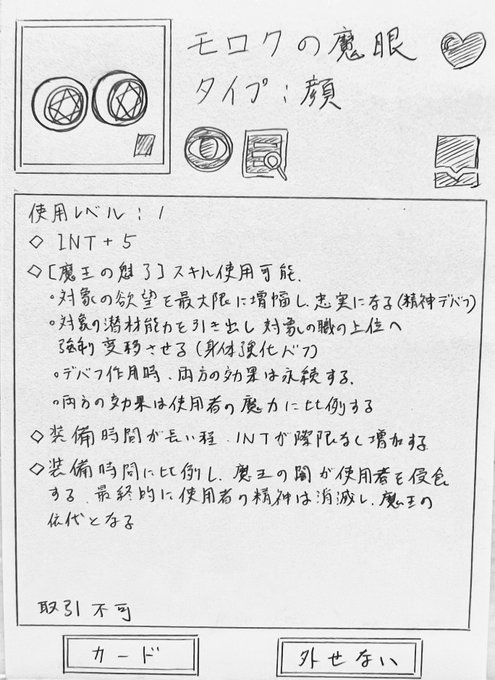 モロクの魔眼
タイプ：顔
使用レベル：1
◇ INT+5
◇ [魔王の魅了]スキル使用可能.
∘対象の欲望を最大限に増幅し、忠実になる(精神デバフ)
∘対象の潜在能力を引き出し 対象の職の上位へ
強制変移させる(身体強化バフ)
∘デバフ作用時、両方の効果は永続する.
∘両方の効果は使用者の魔力に比例する
◇ 装備時間が長い程、INTが際限なく増加する
◇ 装備時間に比例し、魔王の闇が使用者を侵食
する. 最終的に使用者の精神は消滅し、魔王の
依代となる
取引不可
カード
外せない